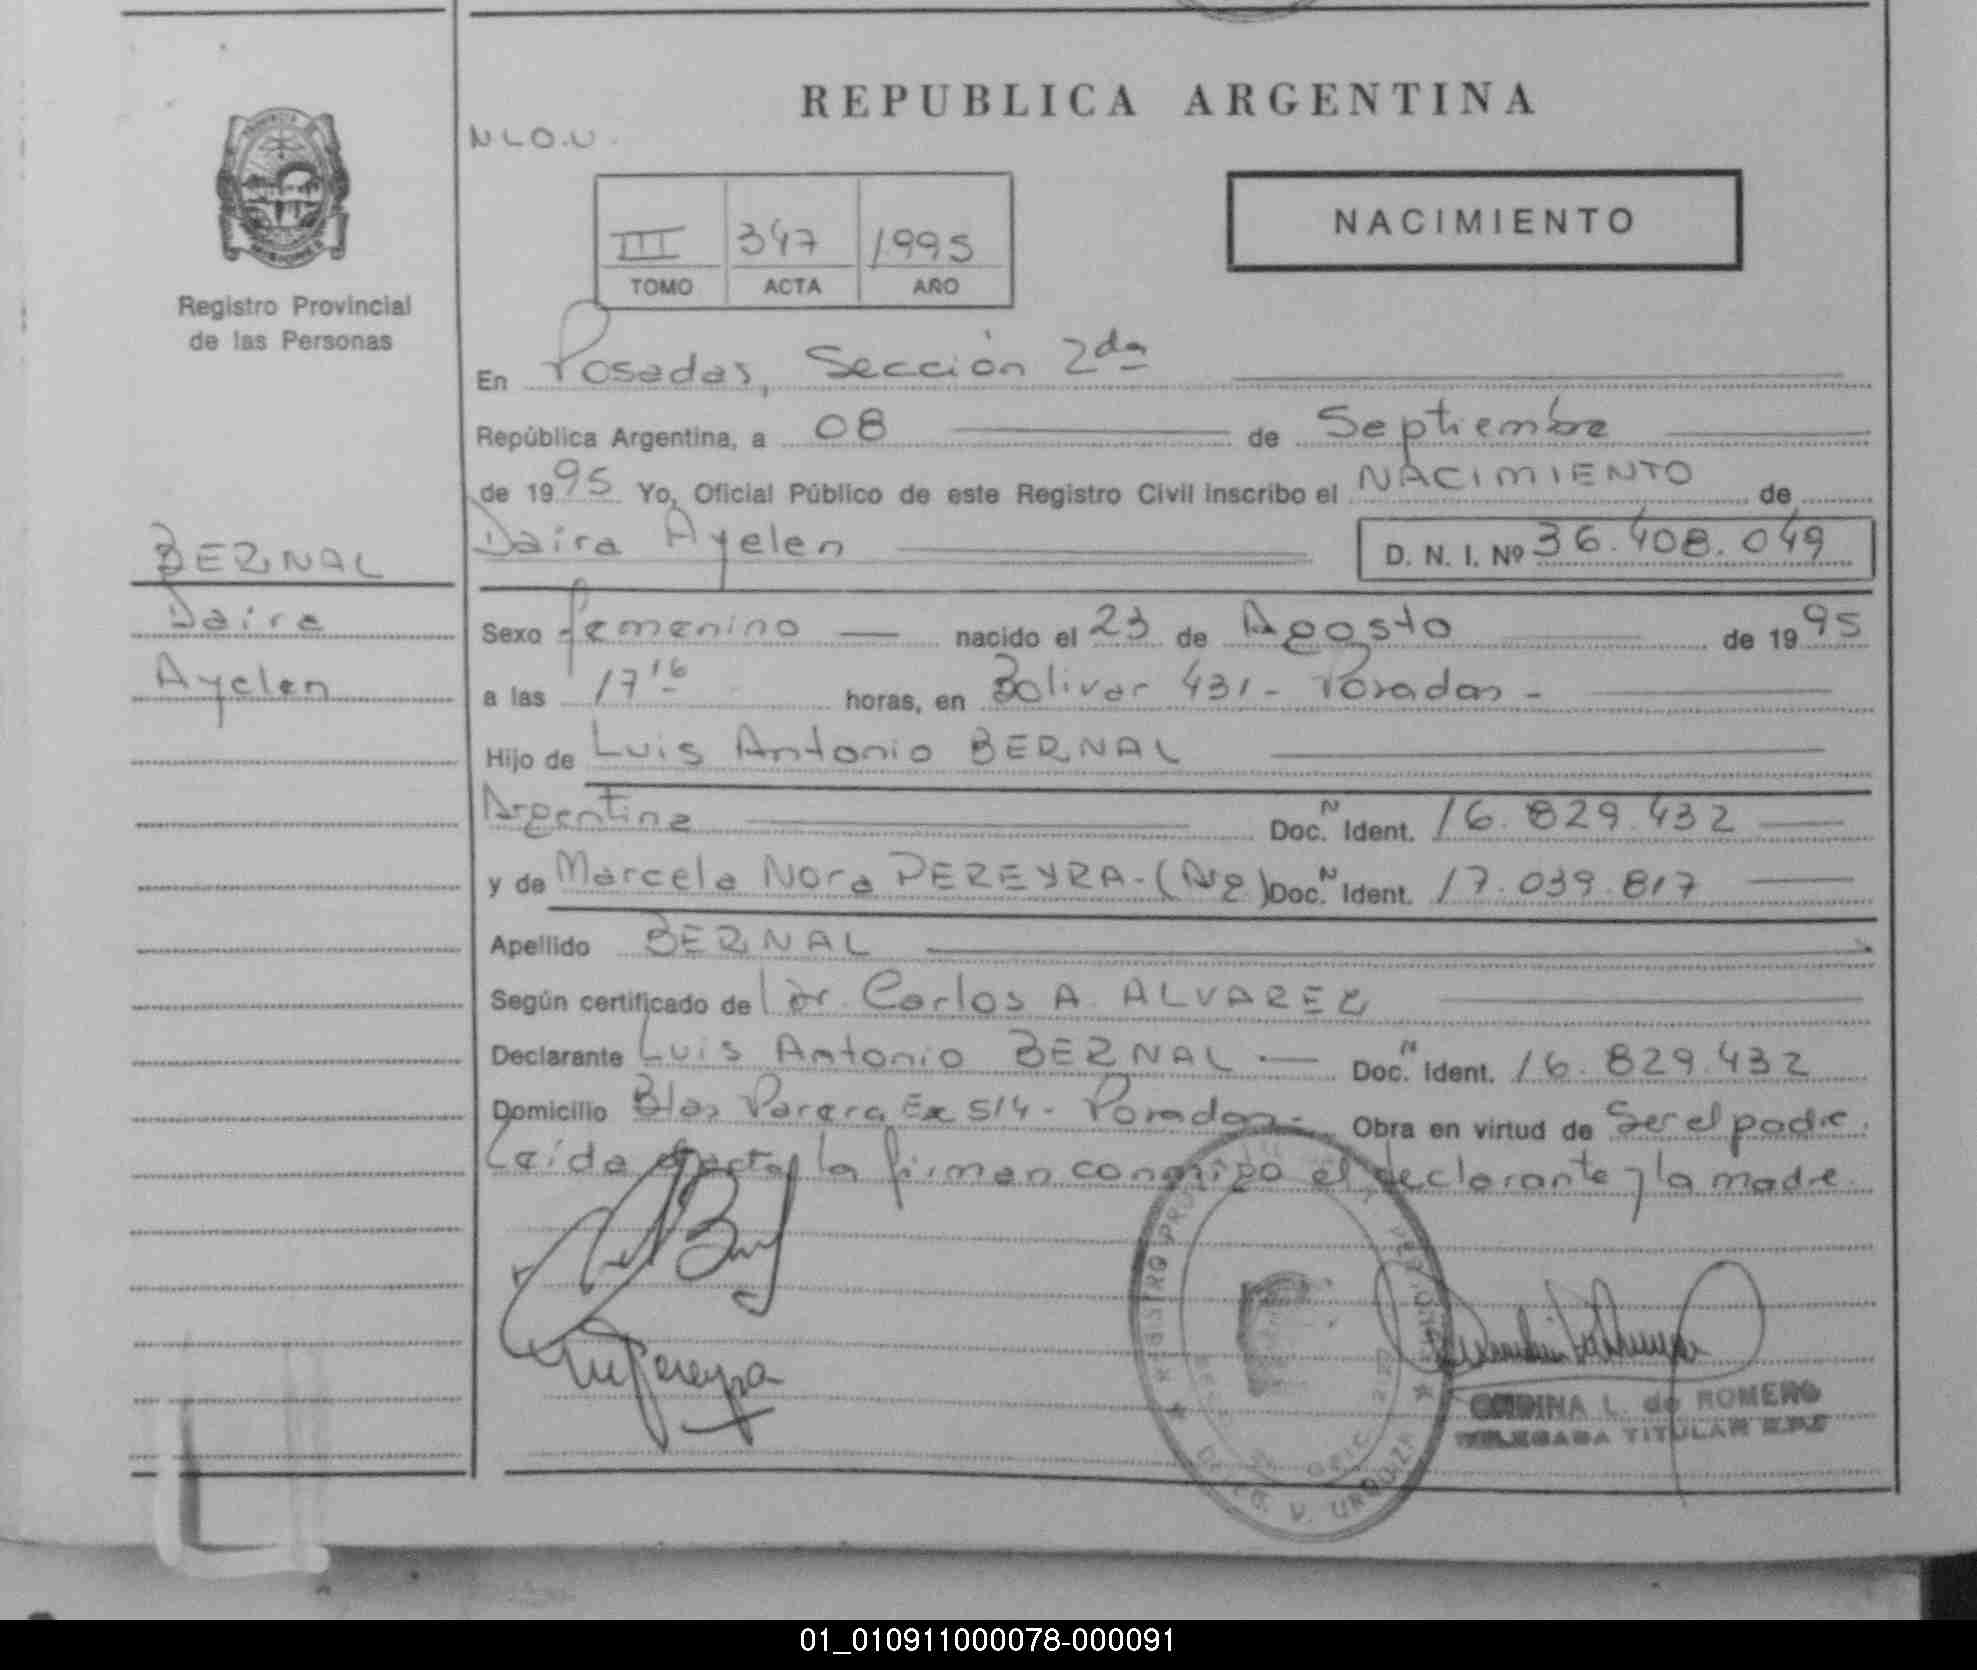 REPUBLICA ARGENTINA
N L O.U.
NACIMIENTO
III 347 1995
TOMO ACTA AÑO
Registro Provincial
de las Personas
En Posadas, Sección 2da
República Argentina, a 08 de Septiembre
de 1995 Yo, Oficial Público de este Registro Civil inscribo el NACIMIENTO de
Daira Ayelen D. N. I. Nº 36.408.049
BERNAL
Daira
Ayelen
Sexo femenino nacido el 23 de Agosto de 1995
a las 17 16 horas, en Bolivar 431 - Posadas -
Hijo de Luis Antonio BERNAL
Argentina Doc. N Ident. 16.829.432
y de Marcela Nora PEREYRA - (Arg) Doc. N Ident. 17.039.817
Apellido BERNAL
Según certificado de Dr. Carlos A. ALVAREZ
Declarante Luis Antonio BERNAL Doc. N Ident. 16.829.432
Domicilio Blas Parera Ex 514 - Posadas - Obra en virtud de Ser el padre.
Leída el acta, la firman conmigo el declarante y la madre.
M Pereyra
L. de ROMERO
TITULAR
V. URQUIZA
01_010911000078-000091